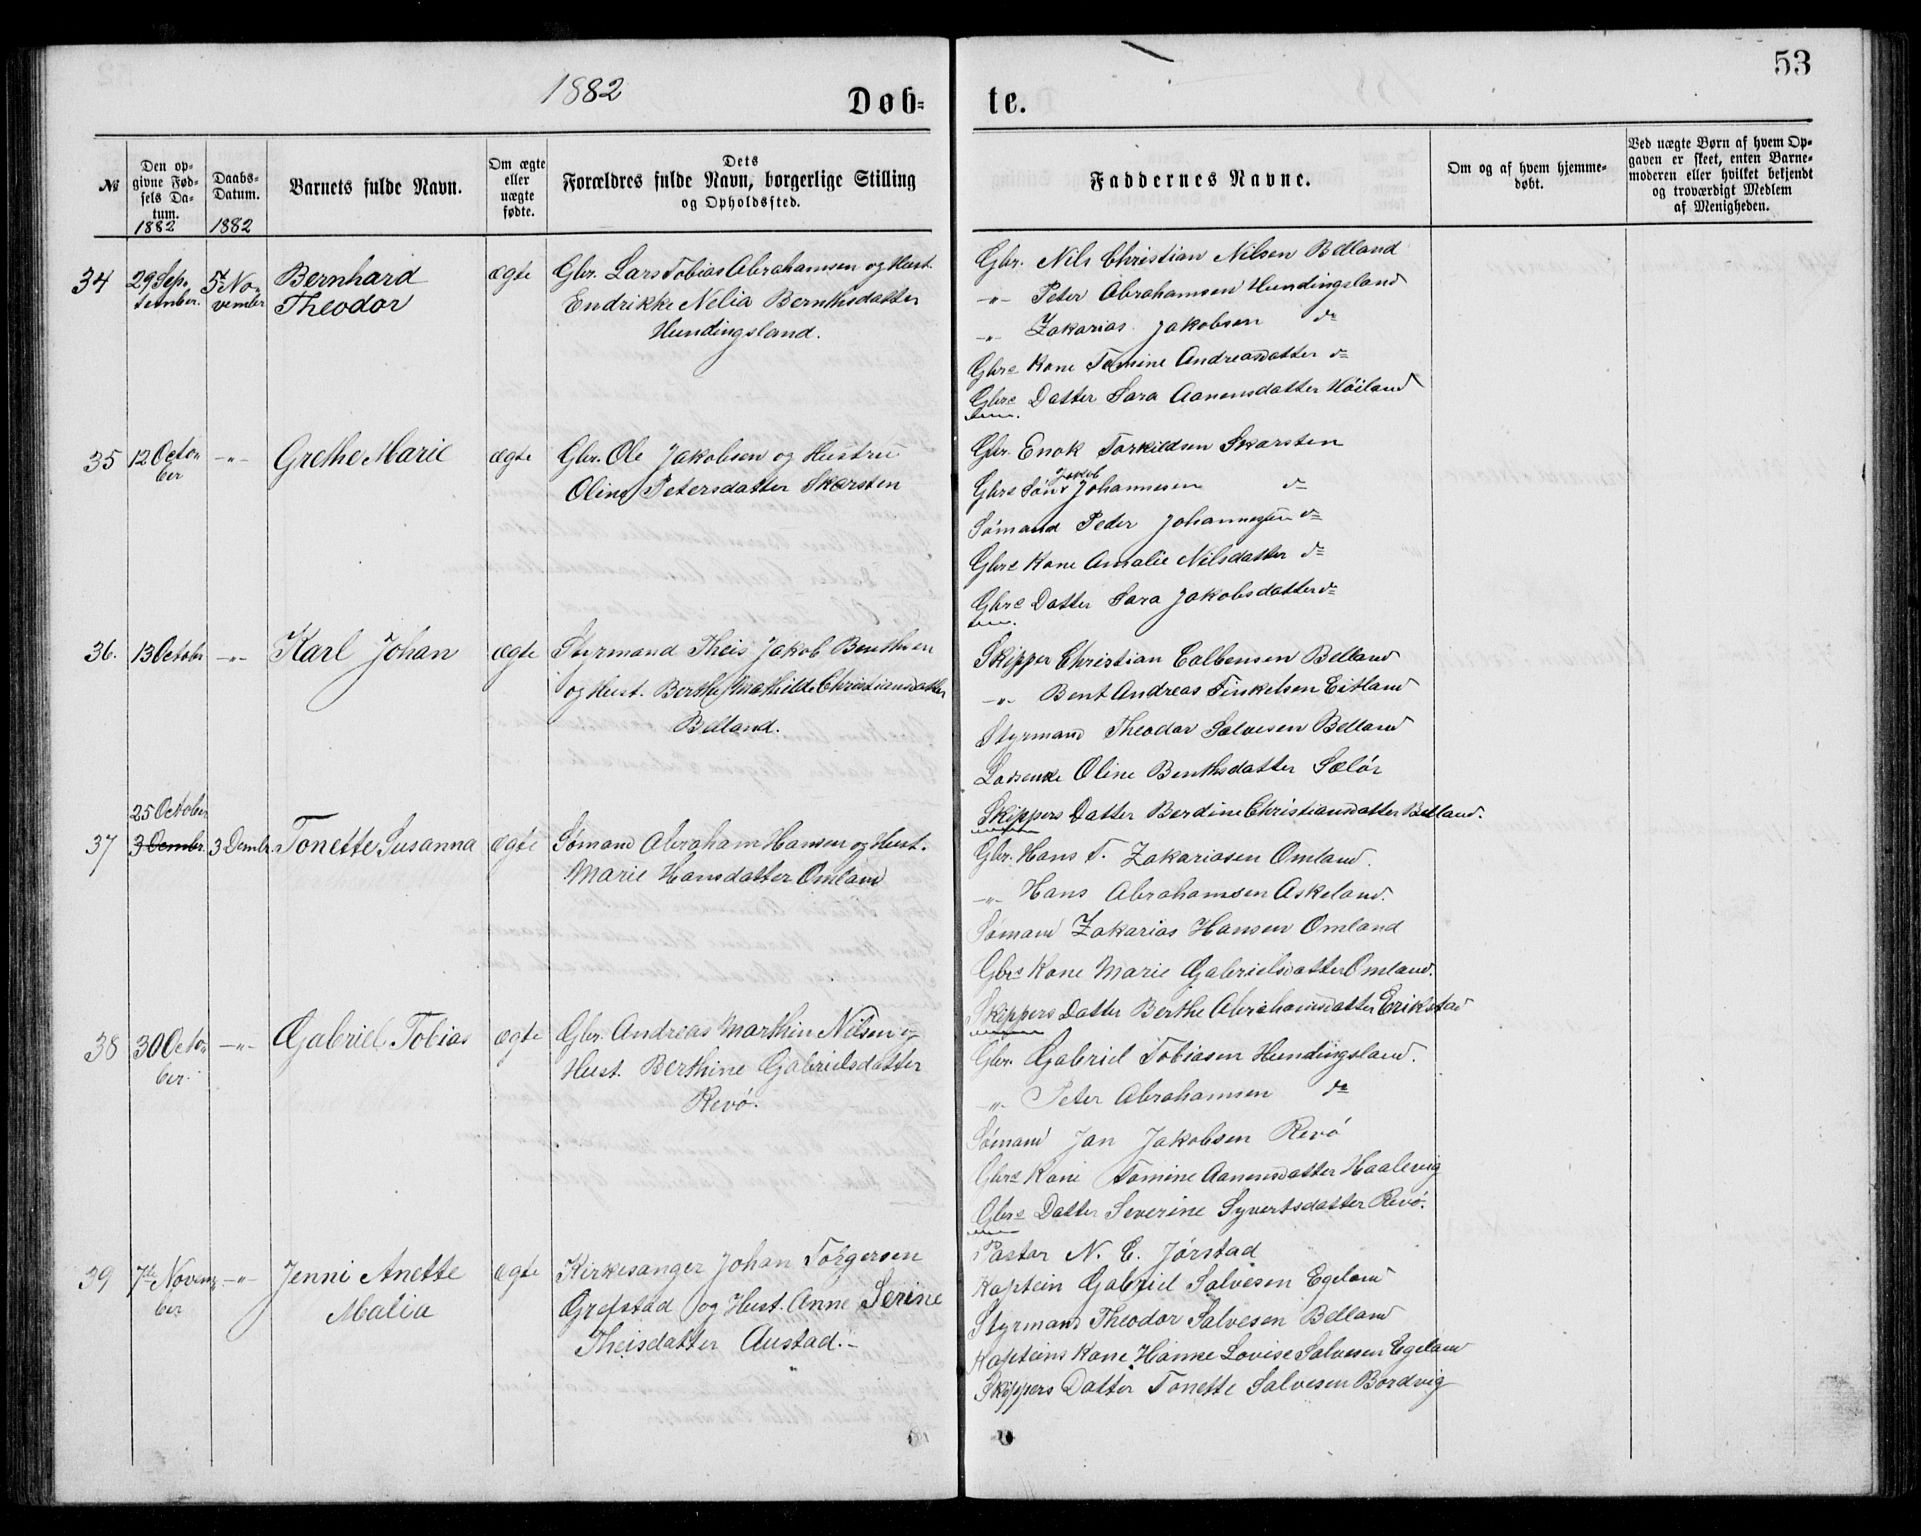 53
1882
Døb-
te.
№
Den op-
givne Fød-
sels Da-
tum.
1882
Daabs-
Datum.
1882
Barnets fulde Navn.
Om ægte
eller
uægte
fødte.
Dets
Forældres fulde Navn, borgerlige Stilling
og Opholdssted.
Faddernes Navne.
Om og af hvem hjemme-
døbt.
Ved uægte Børn af hvem Op-
gaven er skeet, enten Barne-
moderen eller hvilket bekjendt
og troværdigt Medlem
af Menigheden.
34
29 Sep-
tember.
5 No-
vember
Bernhard
Theodor
ægte
Gbr. Lars Tobias Abrahamsen og Hust.
Endrikke Nelia Bernthsdatter
Hundingsland.
Gbr. Nils Christian Nilsen Belland
-"- Peter Abrahamsen Hundingsland
-"- Zakarias Jakobsen do
Gbrs Kone Tomine Andreasdatter do
Gbrs Datter Sara Aanensdatter Høiland
35
12 Octo-
ber
-"-
Grethe Marie
ægte
Gbr. Ole Jakobsen og Hustru
Oline Petersdatter Skarsten
Gbr. Enok Torkildsen Skarsten
Jakob
Gbrs Søn Johannesen do
Sømand Peder Johannesen do
Gbrs Kone Amalie Nilsdatter do
Gbrs Datter Sara Jakobsdatter do
36.
13 Octobr
-"-
Karl Johan
ægte
Styrmand Theis Jakob Benthsen
og Hust. Berthe Mathilde Christiansdatter
Belland.
Skipper Christian Colbensen Belland
-"- Bent Andreas Tinkelsen Eitland
Styrmand Theodor Salvesen Belland
Oline Benthsdatter Sælør
Skippers Datter Berdine Christiansdatter Belland.
37
25 October
3 Dembr.
3 Dembr.
Tonette Susanna
ægte
Sømand Abraham Hansen og Hust.
Marie Hansdatter Omland
Gbr. Hans T. Zakariasen Omland.
-"- Hans Abrahamsen Askeland.
Sømand Zakarias Hansen Omland
Gbrs Kone Marie Gabrielsdatter Omland.
Skippers Datter Berthe Abrahamsdatter Erikstad
38
30 Octo-
ber.
-"-
Gabriel Tobias
ægte
Gbr. Andreas Marthin Nilsen og
Hust. Berthine Gabrielsdatter
Revø.
Gbr. Gabriel Tobiasen Hundingsland.
-"- Peter Abrahamsen do
Sømand Jan Jakobsen Revø
Gbrs Kone Tomine Aanensdatter Haalevig
Gbrs Datter Severine Syvertsdatter Revø.
39
7de Novem-
ber
-"-
Jenni Anette
Malia
ægte
Kirkesanger Johan Torgersen
Grefstad og Hust. Anne Serine
Theisdatter Austad.-
Pastor N. C. Jørstad
Kaptein Gabriel Salvesen Egeland
Styrmand Theodor Salvesen Belland
Kapteins Kone Hanne Lovise Salvesen Egeland
Skippers Datter Tonette Salvesen Bordvig